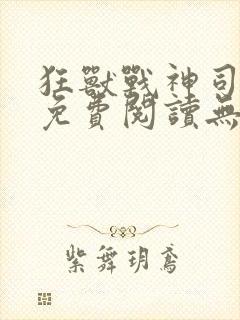 狂獸戰神司
免費閱讀無
紫舞玥鳶